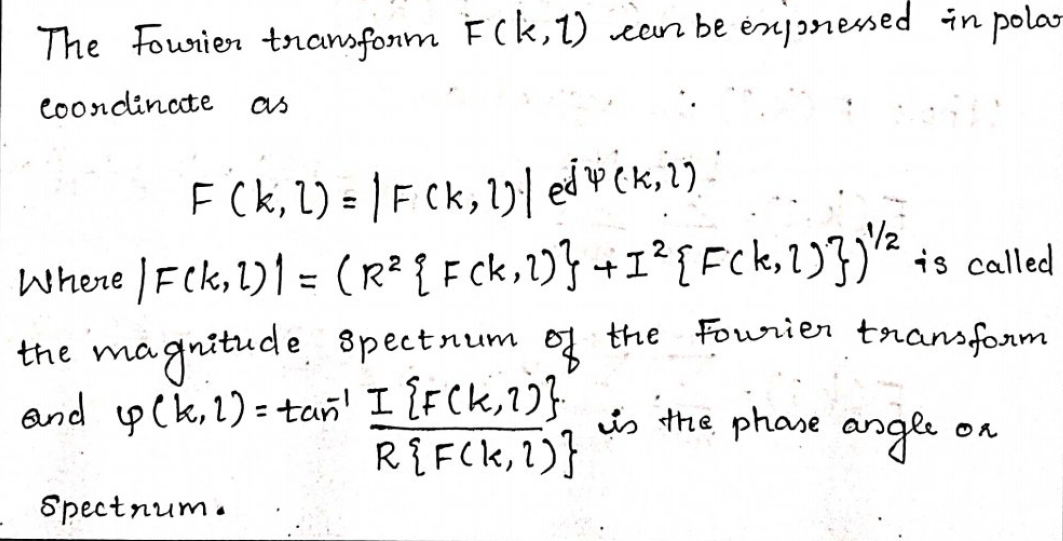 The Fourier transform F(k,l) can be expressed in polar
coordinate as
F(k,l) = |F(k,l)| e^{jφ(k,l)}
Where |F(k,l)| = (R²{F(k,l)} + I²{F(k,l)})^{1/2} is called
the magnitude spectrum of the Fourier transform
and φ(k,l) = tan⁻¹ I{F(k,l)} / R{F(k,l)} is the phase angle or
spectrum.